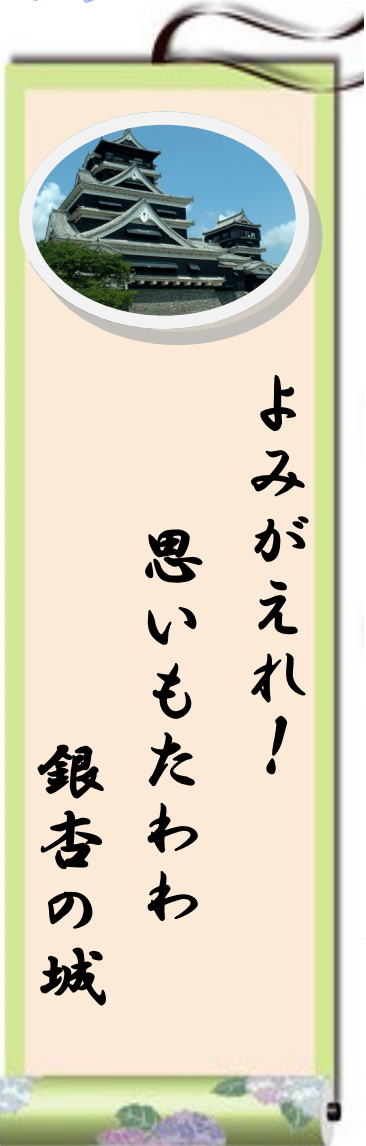 よみがえれ！
思いもたわわ
銀杏の城